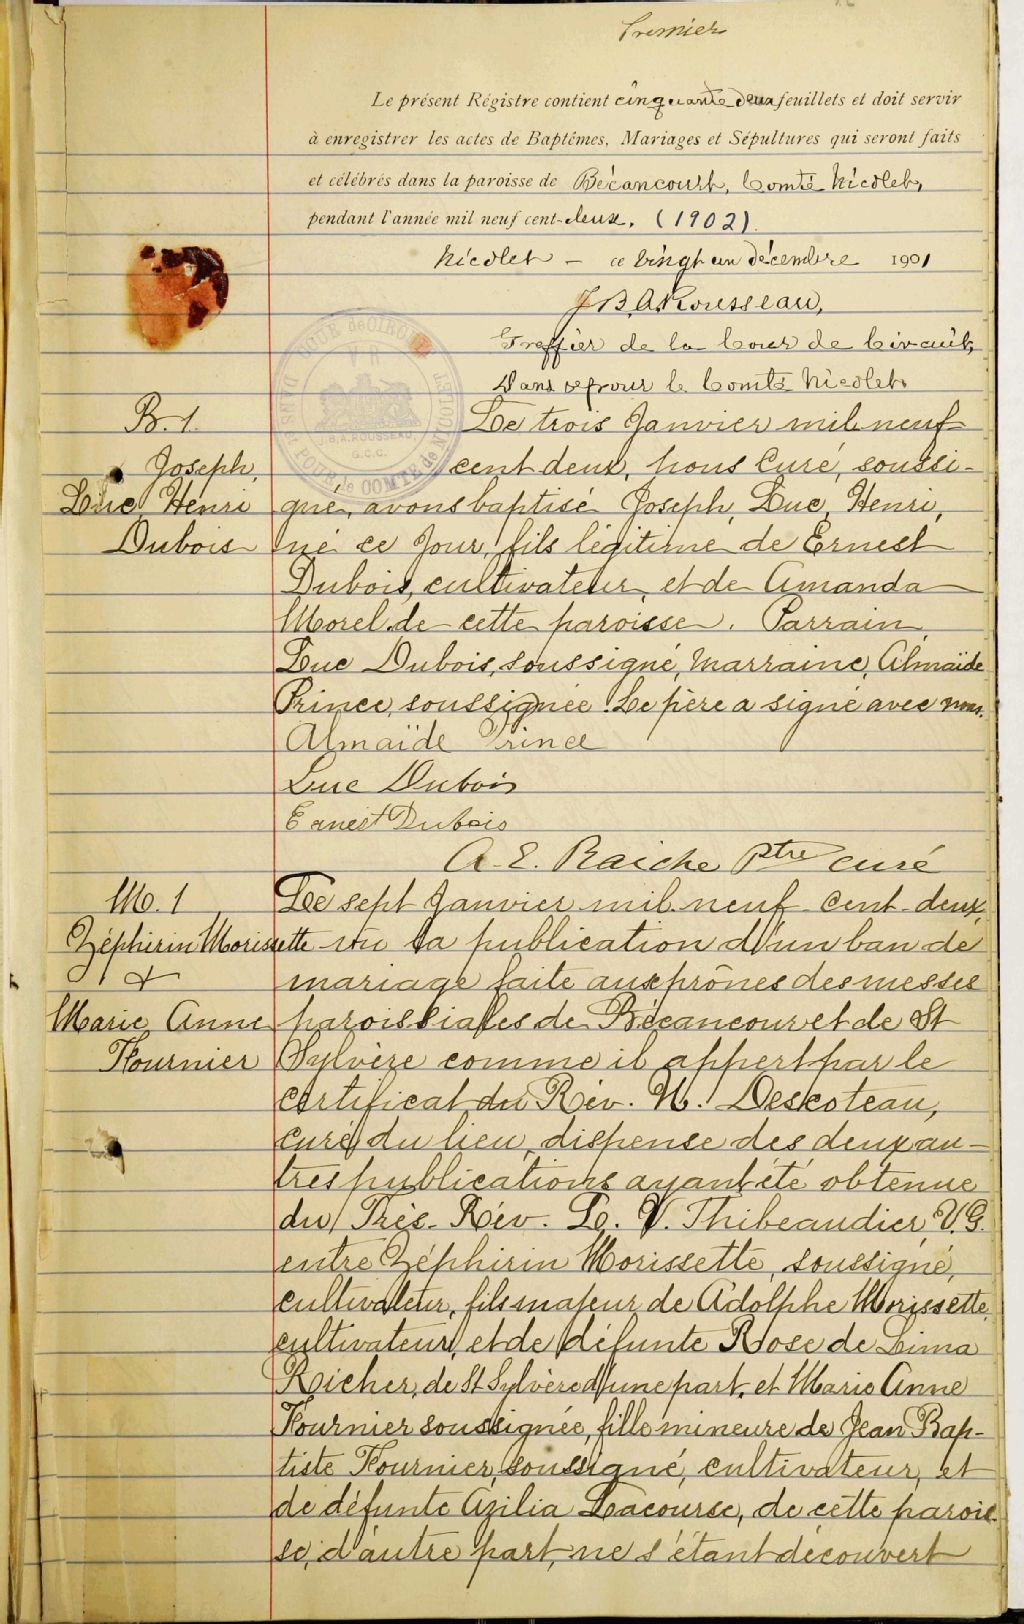 Premier
Le présent Régistre contient cinquante deux feuillets et doit servir
à enregistrer les actes de Baptêmes, Mariages et Sépultures qui seront faits
et célébrés dans la paroisse de Bécancourt, Comté Nicolet,
pendant l'année mil neuf cent-deux. (1902).
Nicolet — ce vingt un décembre 1901
J B A Rousseau,
Greffier de la Cour de Circuit,
Dans et pour le Comté Nicolet.
COUR de CIRCUIT
V R
J.B.A. ROUSSEAU
G.C.C.
DANS et POUR le COMTÉ de NICOLET
B. 1.
Joseph,
Luc, Henri
Dubois
Le trois Janvier mil neuf
cent deux, nous Curé, soussi-
gné, avons baptisé Joseph, Luc, Henri,
né ce Jour, fils légitime de Ernest
Dubois, cultivateur, et de Amanda
Morel de cette paroisse. Parrain
Luc Dubois, soussigné, Marraine, Almaïde
Prince, soussignée. Le père a signé avec nous.
Almaïde Prince
Luc Dubois
Ernest Dubois
A. E. Raiche Ptre curé
M. 1
Zéphirin Morissette
&
Marie Anne
Fournier
Le sept Janvier mil neuf cent-deux,
vu la publication d'un ban de
mariage faite aux prônes des messes
paroissiales de Bécancour et de St
Sylvère comme il appert par le
certificat du Rév. N. Descoteau,
curé du lieu, dispense des deux au-
tres publications ayant été obtenue
du Très-Rév. Ls. V. Thibeaudier, V.G.
entre Zéphirin Morissette, soussigné,
cultivateur, fils majeur de Adolphe Morissette,
cultivateur, et de défunte Rose de Lima
Richer, de St Sylvère d'une part, et Marie Anne
Fournier soussignée, fille mineure de Jean Bap-
tiste Fournier, soussigné, cultivateur, et
de défunte Azilia Lacourse, de cette parois-
se, d'autre part, ne s'étant découvert